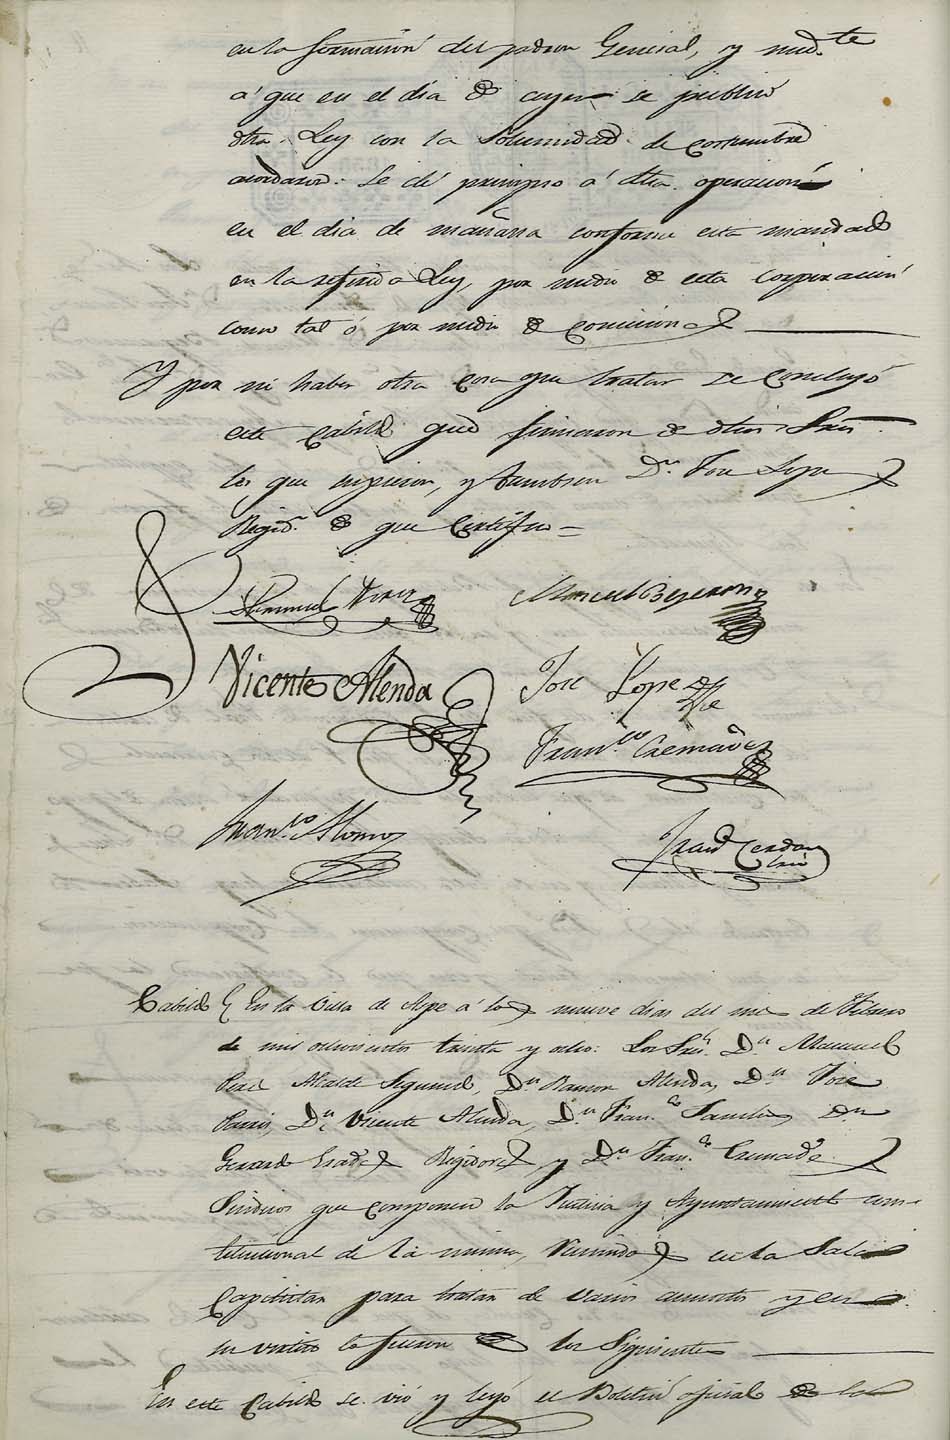 en la formacion del padron General, y med.te
a que en el dia de ayer se publicó
dha. Ley con la Solemnidad de costumbre
acordaron: Se dé principio á dha. operacion
en el dia de mañana conforme esta mandado
en la referida Ley, por medio de esta Corporacion
como tal ó por medio de comicion
Y por no haber otra cosa que tratar se concluyó
este Cabildo que firmaron de dhos. Sres.
los que supieron, y tambien D.n Jose
Regid.r de que Certifico =
Manuel
Vicente Alenda
Jose Lope
Fran.co Cremades
Fran.co Alonso
Fran.co Cerdan
Srio
Cabildo En la Villa de Aspe á los nueve dias del mes de Febrero
de mil ochocientos treinta y ocho: Los Sres. D.n Manuel
Alcalde Segundo, D.n Ramon Alenda, D.n Jose
D.n Vicente Alenda, D.n Fran.co D.n
Gerardo Regidores, y D.n Fran.co Cremades
Sindico que componen la Justicia y Ayuntamiento cons-
titucional de la misma, reunidos en la Sala
Capitular para tratar de varios asuntos y en
su virtud lo fueron de los Siguientes
En este Cabildo se vió y leyó el Boletin oficial de la